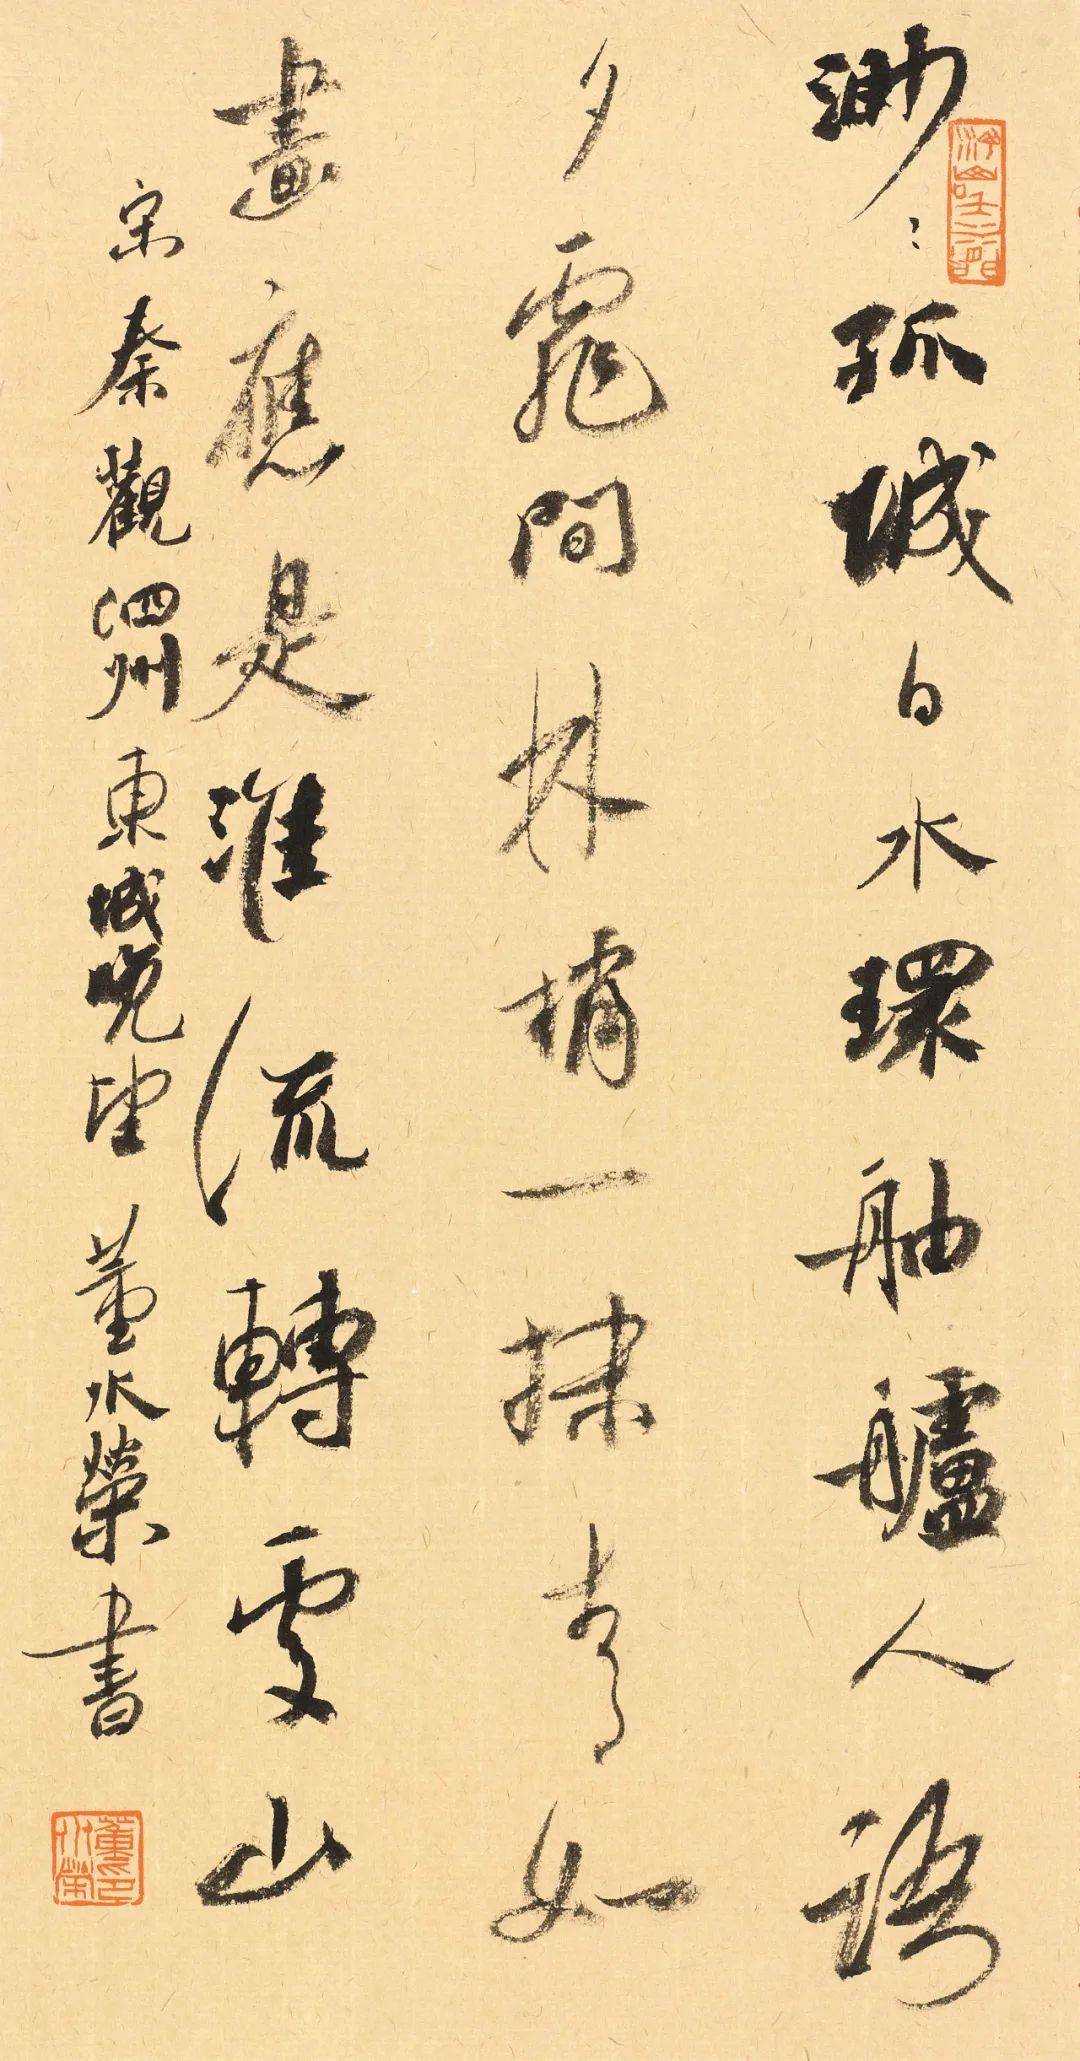 渺〻孤城白水環舳艫人語
夕霏間林梢一抹青如
畫應是淮流轉處山
宋秦觀泗州東城晚望 董水榮書
董印水榮